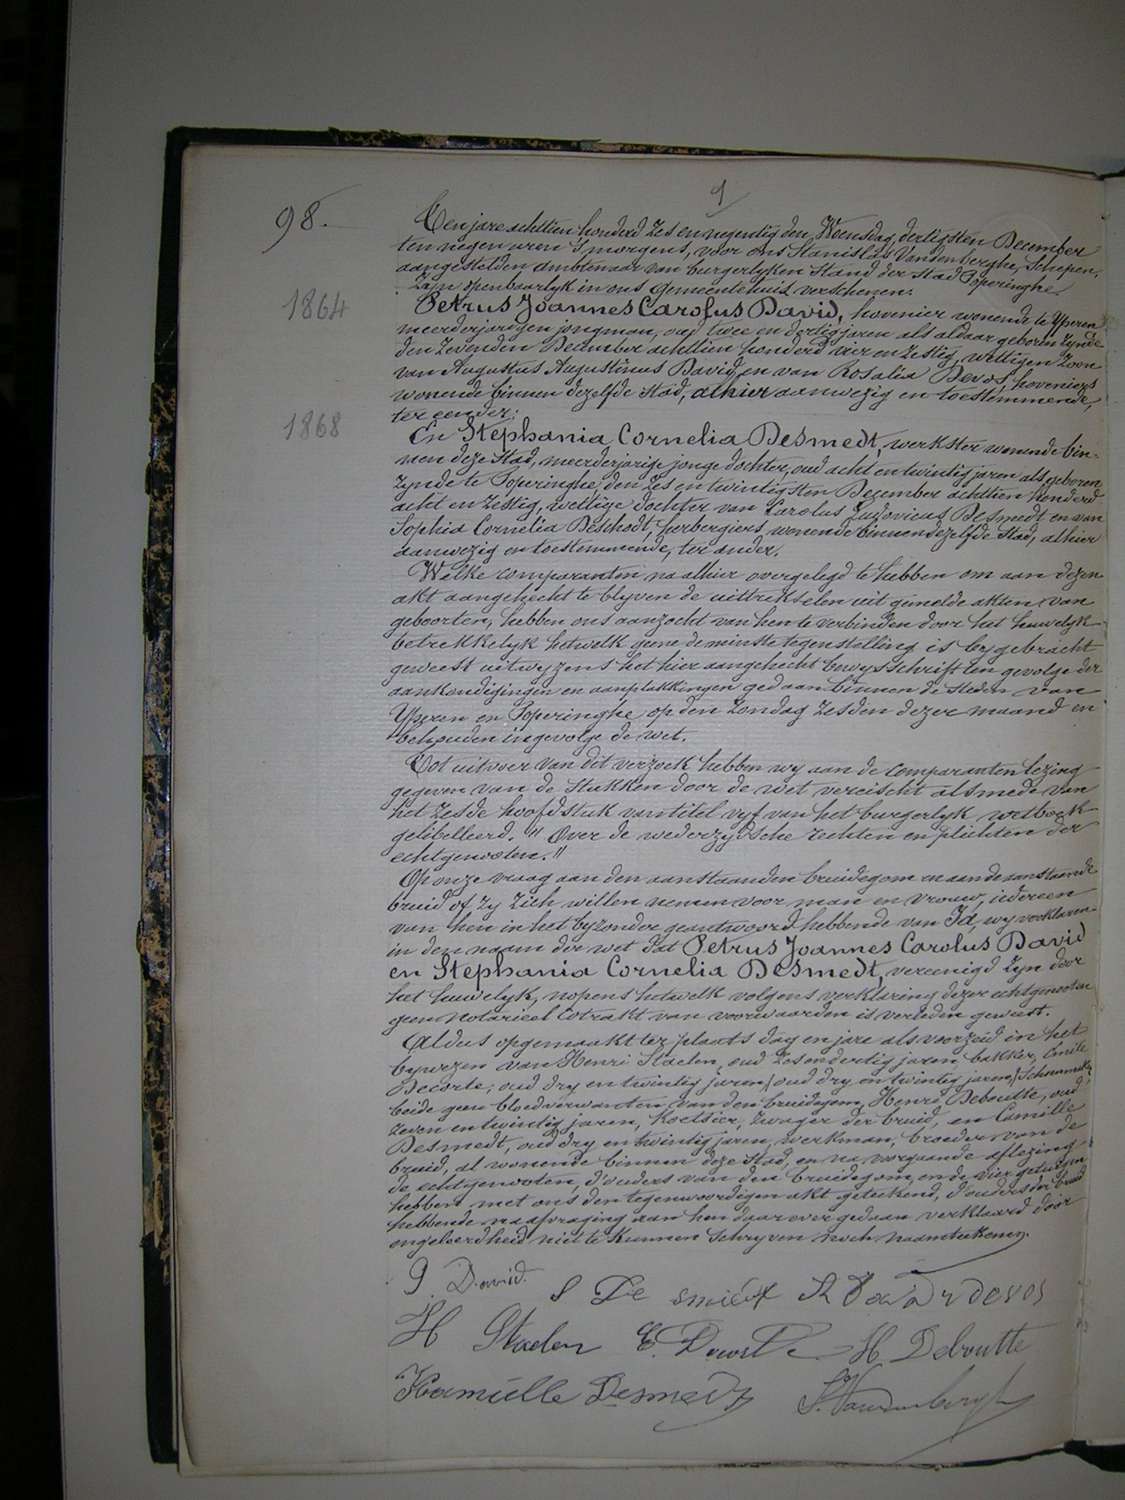 98.
9
Ten jare achttien honderd zes en negentig den Woensdag, dertigsten December
ten negen uren 's morgens, voor ons Stanislas Vandenberghe, Schepen,
aangestelden ambtenaar van burgerlyken Stand der Stad Poperinghe,
Zyn openbaarlyk in ons Gemeentehuis verschenen:
1864
Petrus Joannes Carolus David, hovenier wonende te Yperen
meerderjarigen jongman, oud twee en dertig jaren als aldaar geboren zynde
den Zevenden December achttien honderd vier en zestig, wettigen Zoon
van Augustus Augustinus David en van Rosalia Devos, hoveniers
wonende binnen dezelfde Stad, alhier aanwezig en toestemmende,
ter eender;
1868
En Stephania Cornelia Desmedt, werkster wonende bin-
nen deze Stad, meerderjarige jonge dochter, oud acht en twintig jaren als geboren
zynde te Poperinghe, den zes en twintigsten December achttien honderd
acht en zestig, wettige dochter van Carolus Ludovicus Desmedt en van
Sophia Cornelia Deschodt, herbergiers wonende binnen dezelfde Stad, alhier
aanwezig en toestemmende, ter ander.
Welke comparanten na alhier overgelegd te hebben om aan dezen
akt aangehecht te blyven de uittrekselen uit gemelde akten van
geboorten, hebben ons aanzocht van hen te verbinden door het huwelyk
betrekkelyk hetwelk geene de minste tegenstelling is bygebracht
geweest uitwyzens het hier aangehecht bewysschrift ten gevolge der
aankondigingen en aanplakkingen gedaan binnen de steden van
Yperen en Poperinghe op den Zondag zesden dezer maand en
behouden ingevolge de wet.
Tot uitvoer van dit verzoek hebben wy aan de comparanten lezing
gegeven van de Stukken door de wet vereischt alsmede van
het zesde hoofdstuk van titel vyf van het burgerlyk wetboek
gelibelleerd. " Over de wederzydsche rechten en plichten der
echtgenooten."
Op onze vraag aan den aanstaanden bruidegom en aan de aanstaande
bruid of zy zich willen nemen voor man en vrouw, iedereen
van hen in het byzonder geantwoord hebbende van Ja, wy verklaren
in den naam der wet dat Petrus Joannes Carolus David
en Stephania Cornelia Desmedt, vereenigd zyn door
het huwelyk, nopens hetwelk volgens verklaring dezer echtgenooten
geen Notarieel Cotrakt van voorwaarden is verleden geweest.
Aldus opgemaakt ter plaats dag en jare als voorzeid in het
bywezen van Henri Staelen, oud zesendertig jaren, bakker, Emile
Decorte, oud dry en twintig jaren, / oud dry en twintig jaren / Schoenmaker,
beide geen bloedverwanten van den bruidegom, Henri Deboutte, oud
zeven en twintig jaren, Koetsier, Zwager der bruid, en Camille
Desmedt, oud dry en twintig jaren, werkman, broeder van de
bruid, al wonende binnen deze Stad, en na voorgaande aflezing
de echtgenooten, d'ouders van den bruidegom en de vier getuigen
hebben met ons den tegenwoordigen akt geteekend, d'ouders der bruid
hebbende na afvraging aan hen daarover gedaan verklaard door
ongeleerdheid niet te kunnen Schryven noch naamteekenen.
P David. S De smedt R devos
H Staelen E. Decorte H Deboutte
Kamiille Desmedt S. Vandenberghe